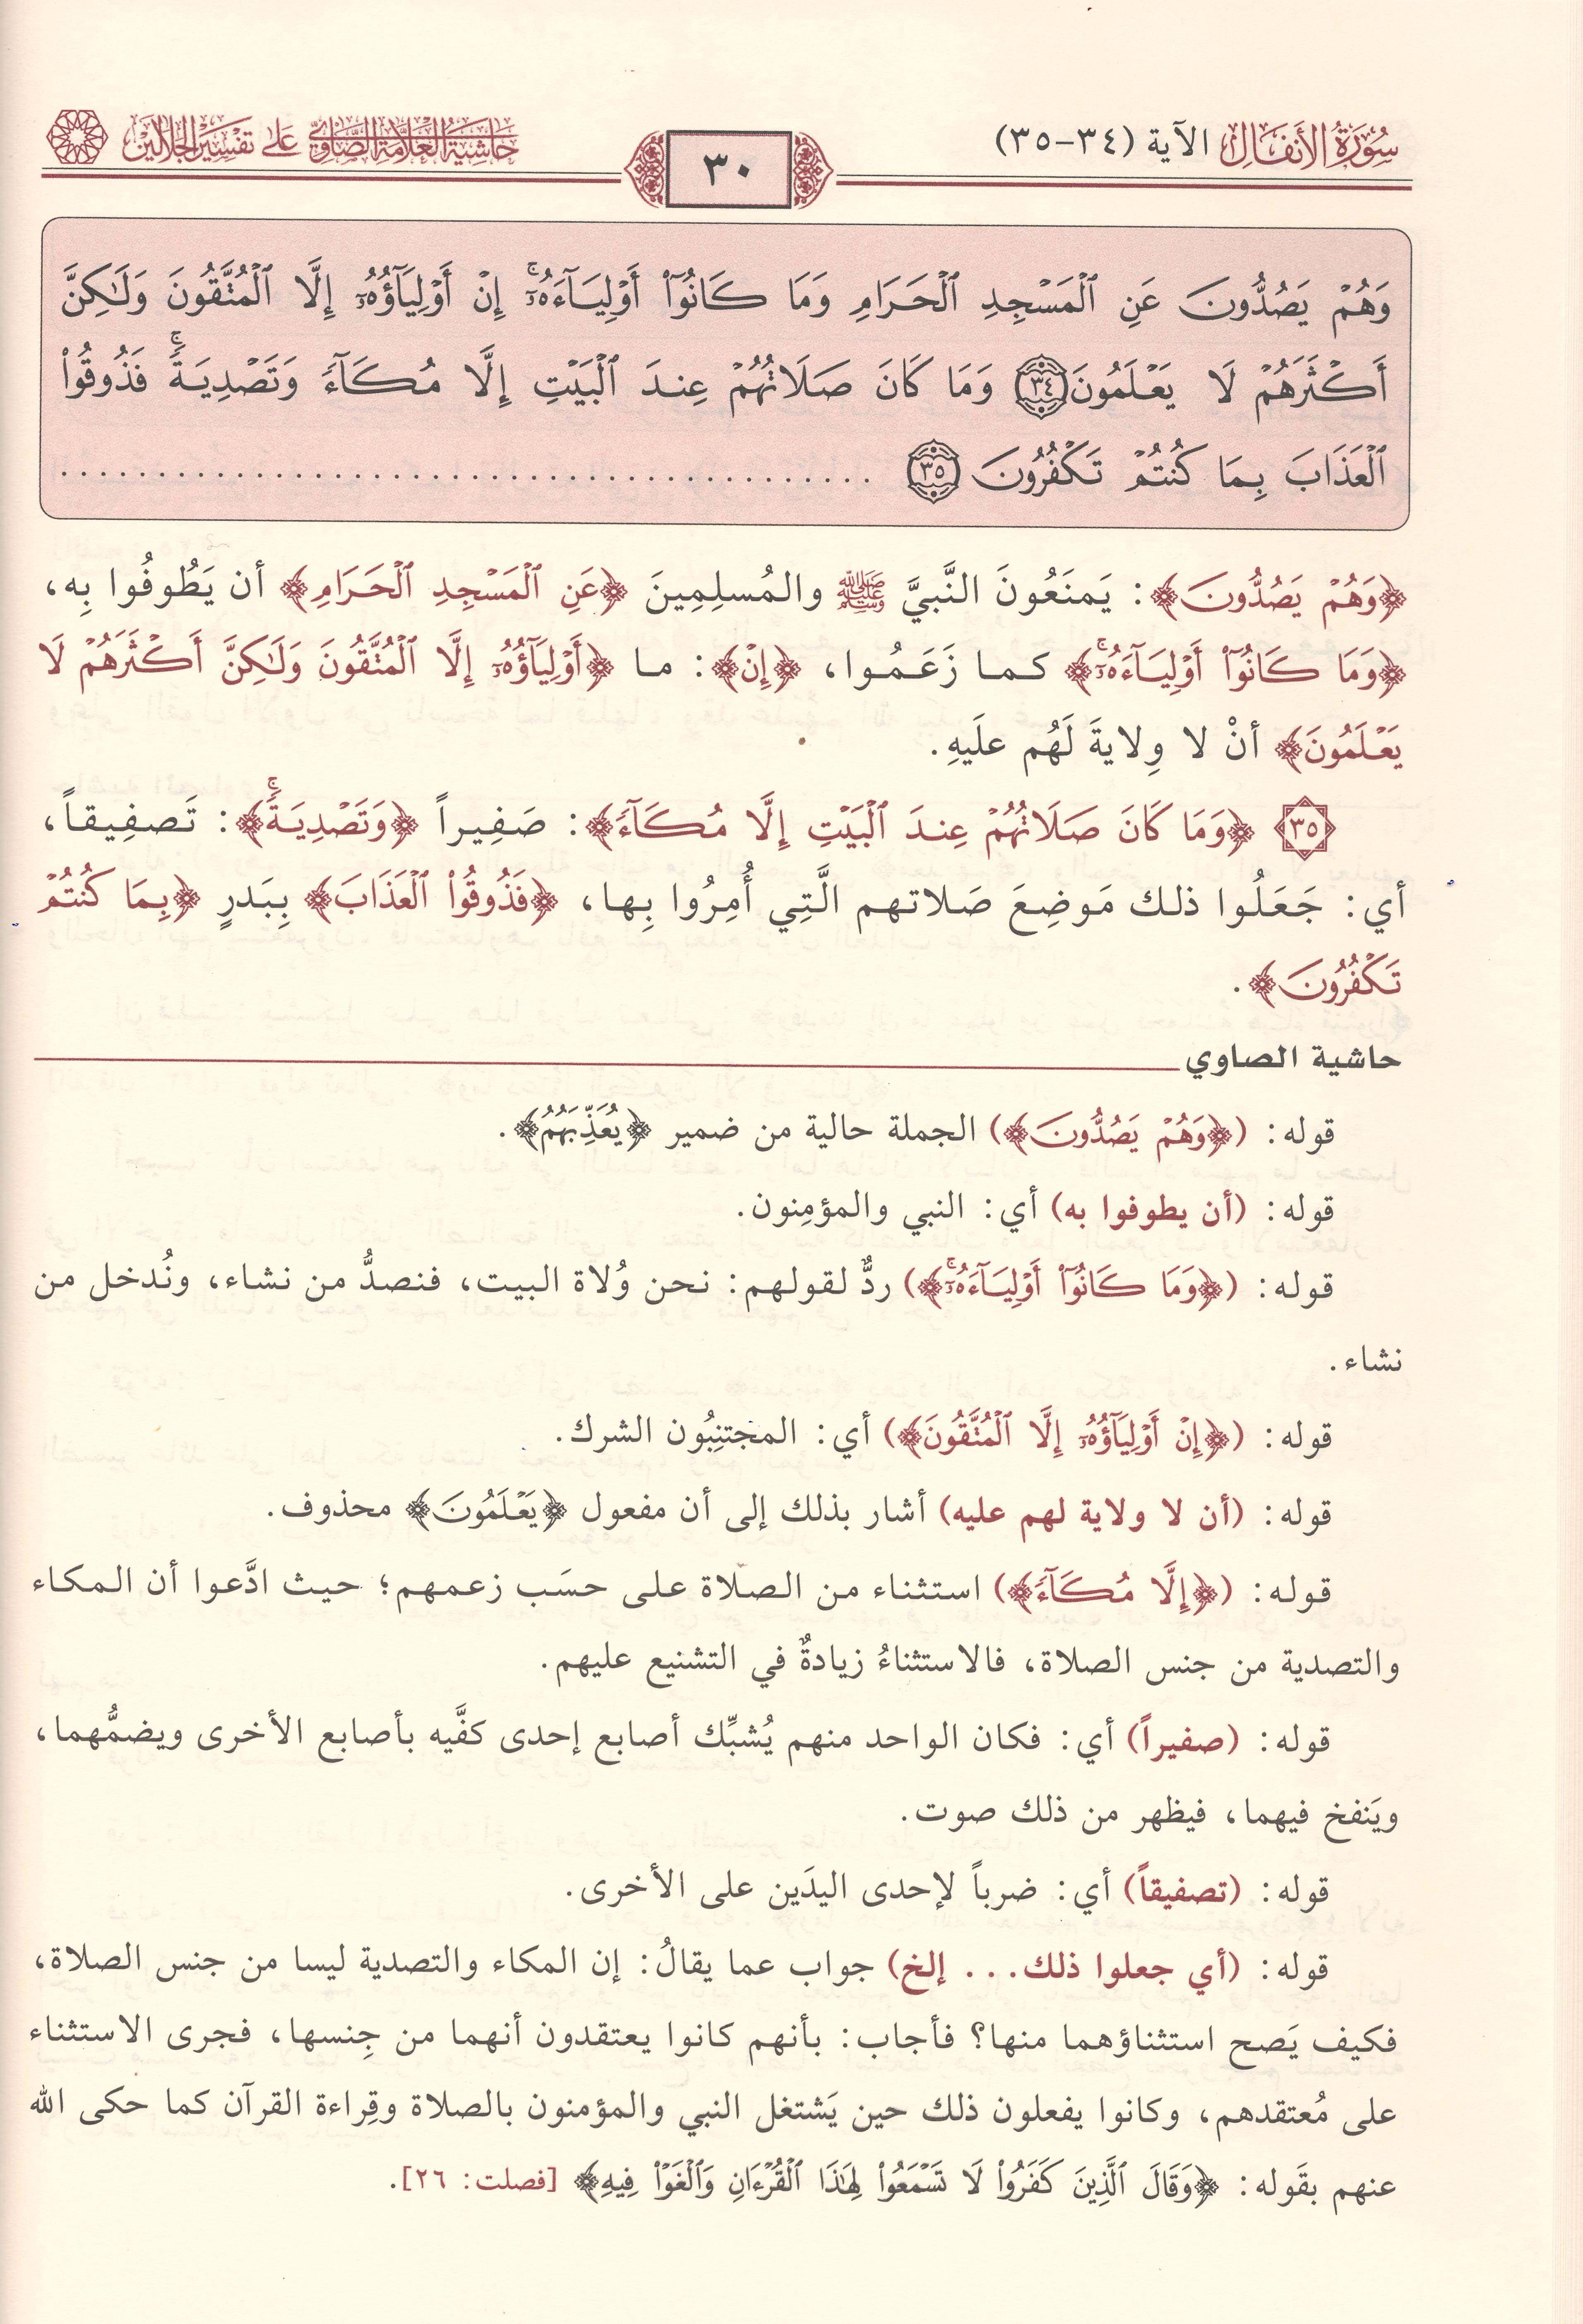 سُورَةُ الأَنفَال الآية (٣٤-٣٥)
٣٠
حَاشِيَةُ العَلَّامَةِ الصَّاوِيّ عَلى تَفسِير الجَلَالَين
وَهُمۡ يَصُدُّونَ عَنِ ٱلۡمَسۡجِدِ ٱلۡحَرَامِ وَمَا كَانُوٓاْ أَوۡلِيَآءَهُۥٓۚ إِنۡ أَوۡلِيَآؤُهُۥٓ إِلَّا ٱلۡمُتَّقُونَ وَلَٰكِنَّ
أَكۡثَرَهُمۡ لَا يَعۡلَمُونَ ٣٤ وَمَا كَانَ صَلَاتُهُمۡ عِندَ ٱلۡبَيۡتِ إِلَّا مُكَآءٗ وَتَصۡدِيَةٗۚ فَذُوقُواْ
ٱلۡعَذَابَ بِمَا كُنتُمۡ تَكۡفُرُونَ ٣٥ ........................................
﴿وَهُمۡ يَصُدُّونَ﴾: يَمنَعُونَ النَّبيَّ ﷺ والمُسلِمِينَ ﴿عَنِ ٱلۡمَسۡجِدِ ٱلۡحَرَامِ﴾ أن يَطُوفُوا بِه،
﴿وَمَا كَانُوٓاْ أَوۡلِيَآءَهُۥٓۚ﴾ كما زَعَمُوا، ﴿إِنۡ﴾: ما ﴿أَوۡلِيَآؤُهُۥٓ إِلَّا ٱلۡمُتَّقُونَ وَلَٰكِنَّ أَكۡثَرَهُمۡ لَا
يَعۡلَمُونَ﴾ أنْ لا وِلايةَ لَهُم علَيهِ.
٣٥ ﴿وَمَا كَانَ صَلَاتُهُمۡ عِندَ ٱلۡبَيۡتِ إِلَّا مُكَآءٗ﴾: صَفِيراً ﴿وَتَصۡدِيَةٗۚ﴾: تَصفِيقاً،
أي: جَعَلُوا ذلك مَوضِعَ صَلاتهم الَّتِي أُمِرُوا بِها، ﴿فَذُوقُواْ ٱلۡعَذَابَ﴾ بِبَدرٍ ﴿بِمَا كُنتُمۡ
تَكۡفُرُونَ﴾.
حاشية الصاوي
قوله: (﴿وَهُمۡ يَصُدُّونَ﴾) الجملة حالية من ضمير ﴿يُعَذِّبَهُمُ﴾.
قوله: (أن يطوفوا به) أي: النبي والمؤمِنون.
قوله: (﴿وَمَا كَانُوٓاْ أَوۡلِيَآءَهُۥٓۚ﴾) ردٌّ لقولهم: نحن وُلاة البيت، فنصدُّ من نشاء، ونُدخل من
نشاء.
قوله: (﴿إِنۡ أَوۡلِيَآؤُهُۥٓ إِلَّا ٱلۡمُتَّقُونَ﴾) أي: المجتنِبُون الشرك.
قوله: (أن لا ولاية لهم عليه) أشار بذلك إلى أن مفعول ﴿يَعۡلَمُونَ﴾ محذوف.
قوله: (﴿إِلَّا مُكَآءٗ﴾) استثناء من الصلاة على حسَب زعمهم؛ حيث ادَّعوا أن المكاء
والتصدية من جنس الصلاة، فالاستثناءُ زيادةٌ في التشنيع عليهم.
قوله: (صفيراً) أي: فكان الواحد منهم يُشبِّك أصابع إحدى كفَّيه بأصابع الأخرى ويضمُّهما،
ويَنفخ فيهما، فيظهر من ذلك صوت.
قوله: (تصفيقاً) أي: ضرباً لإحدى اليدَين على الأخرى.
قوله: (أي جعلوا ذلك... إلخ) جواب عما يقالُ: إن المكاء والتصدية ليسا من جنس الصلاة،
فكيف يَصح استثناؤهما منها؟ فأجاب: بأنهم كانوا يعتقدون أنهما من جِنسها، فجرى الاستثناء
على مُعتقدهم، وكانوا يفعلون ذلك حين يَشتغل النبي والمؤمنون بالصلاة وقِراءة القرآن كما حكى الله
عنهم بقَوله: ﴿وَقَالَ ٱلَّذِينَ كَفَرُواْ لَا تَسۡمَعُواْ لِهَٰذَا ٱلۡقُرۡءَانِ وَٱلۡغَوۡاْ فِيهِ﴾ [فصلت: ٢٦].